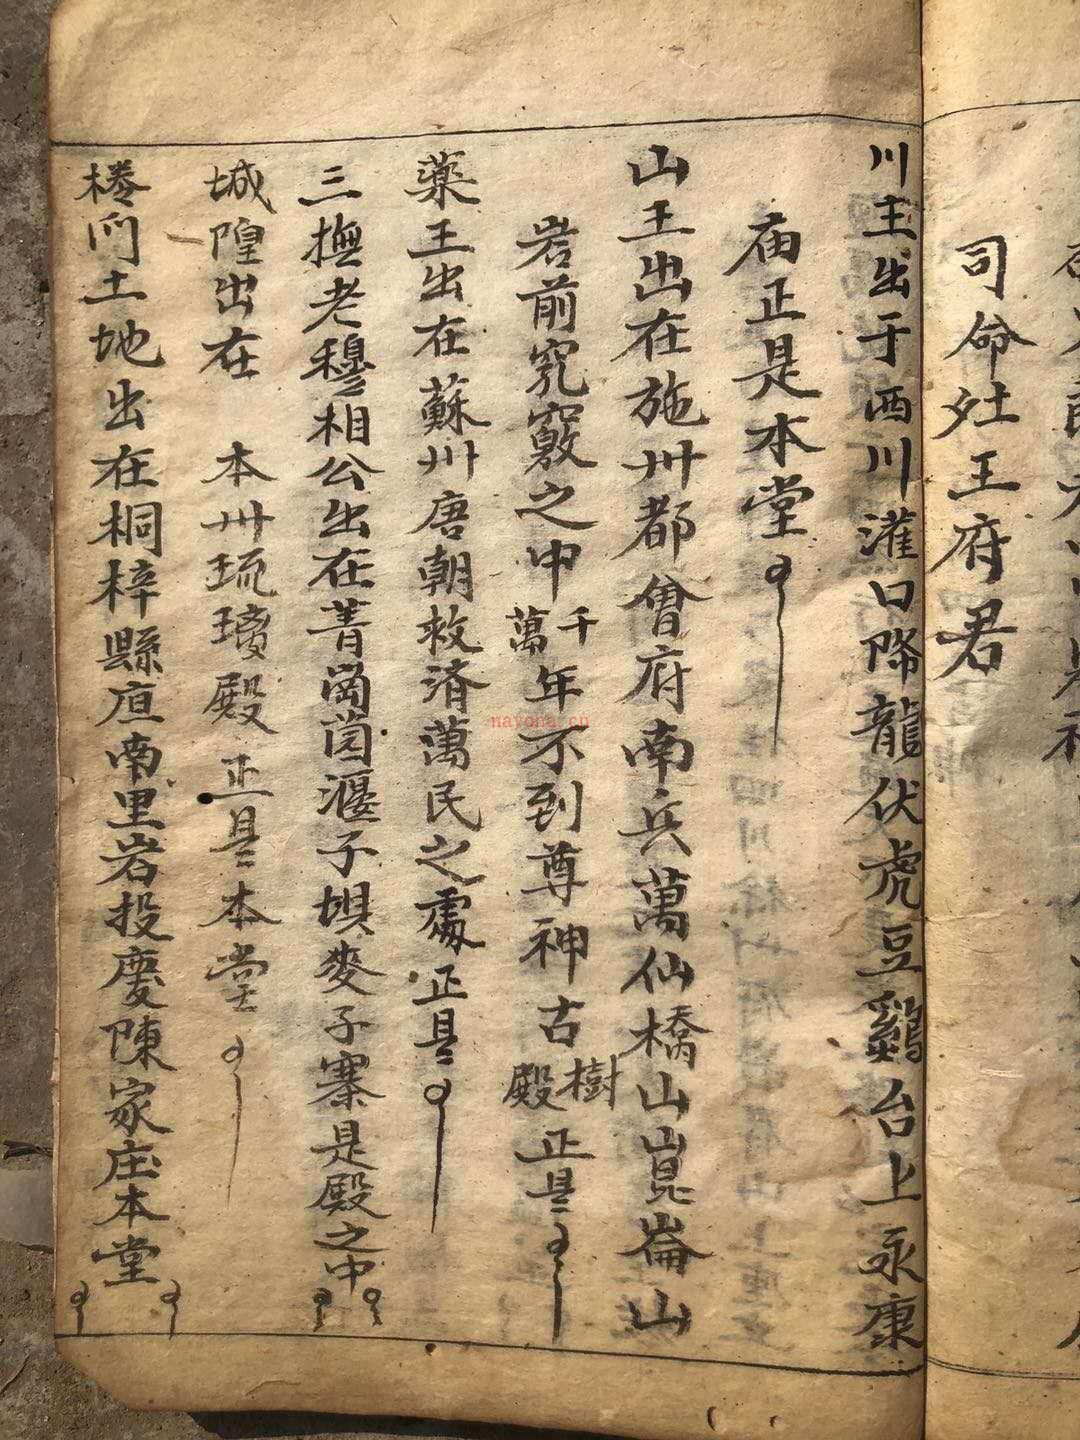 司命灶王府君
川主出于西川灌口降龍伏虎豆鷄台上永康
庙正是本堂
山王出在施州都會府南兵萬仙橋山崑崙山
岩前究竅之中千萬年不到尊神古樹殿正是
藥王出在蘇州唐朝救済萬民之處正是
三撫老穆相公出在菁崗园渥子垻麥子寨是殿之中
城隍出在 本州琉璃殿正是本堂
桊门土地出在桐梓縣亱南里岩投慶陳家庄本堂
nayona.cn